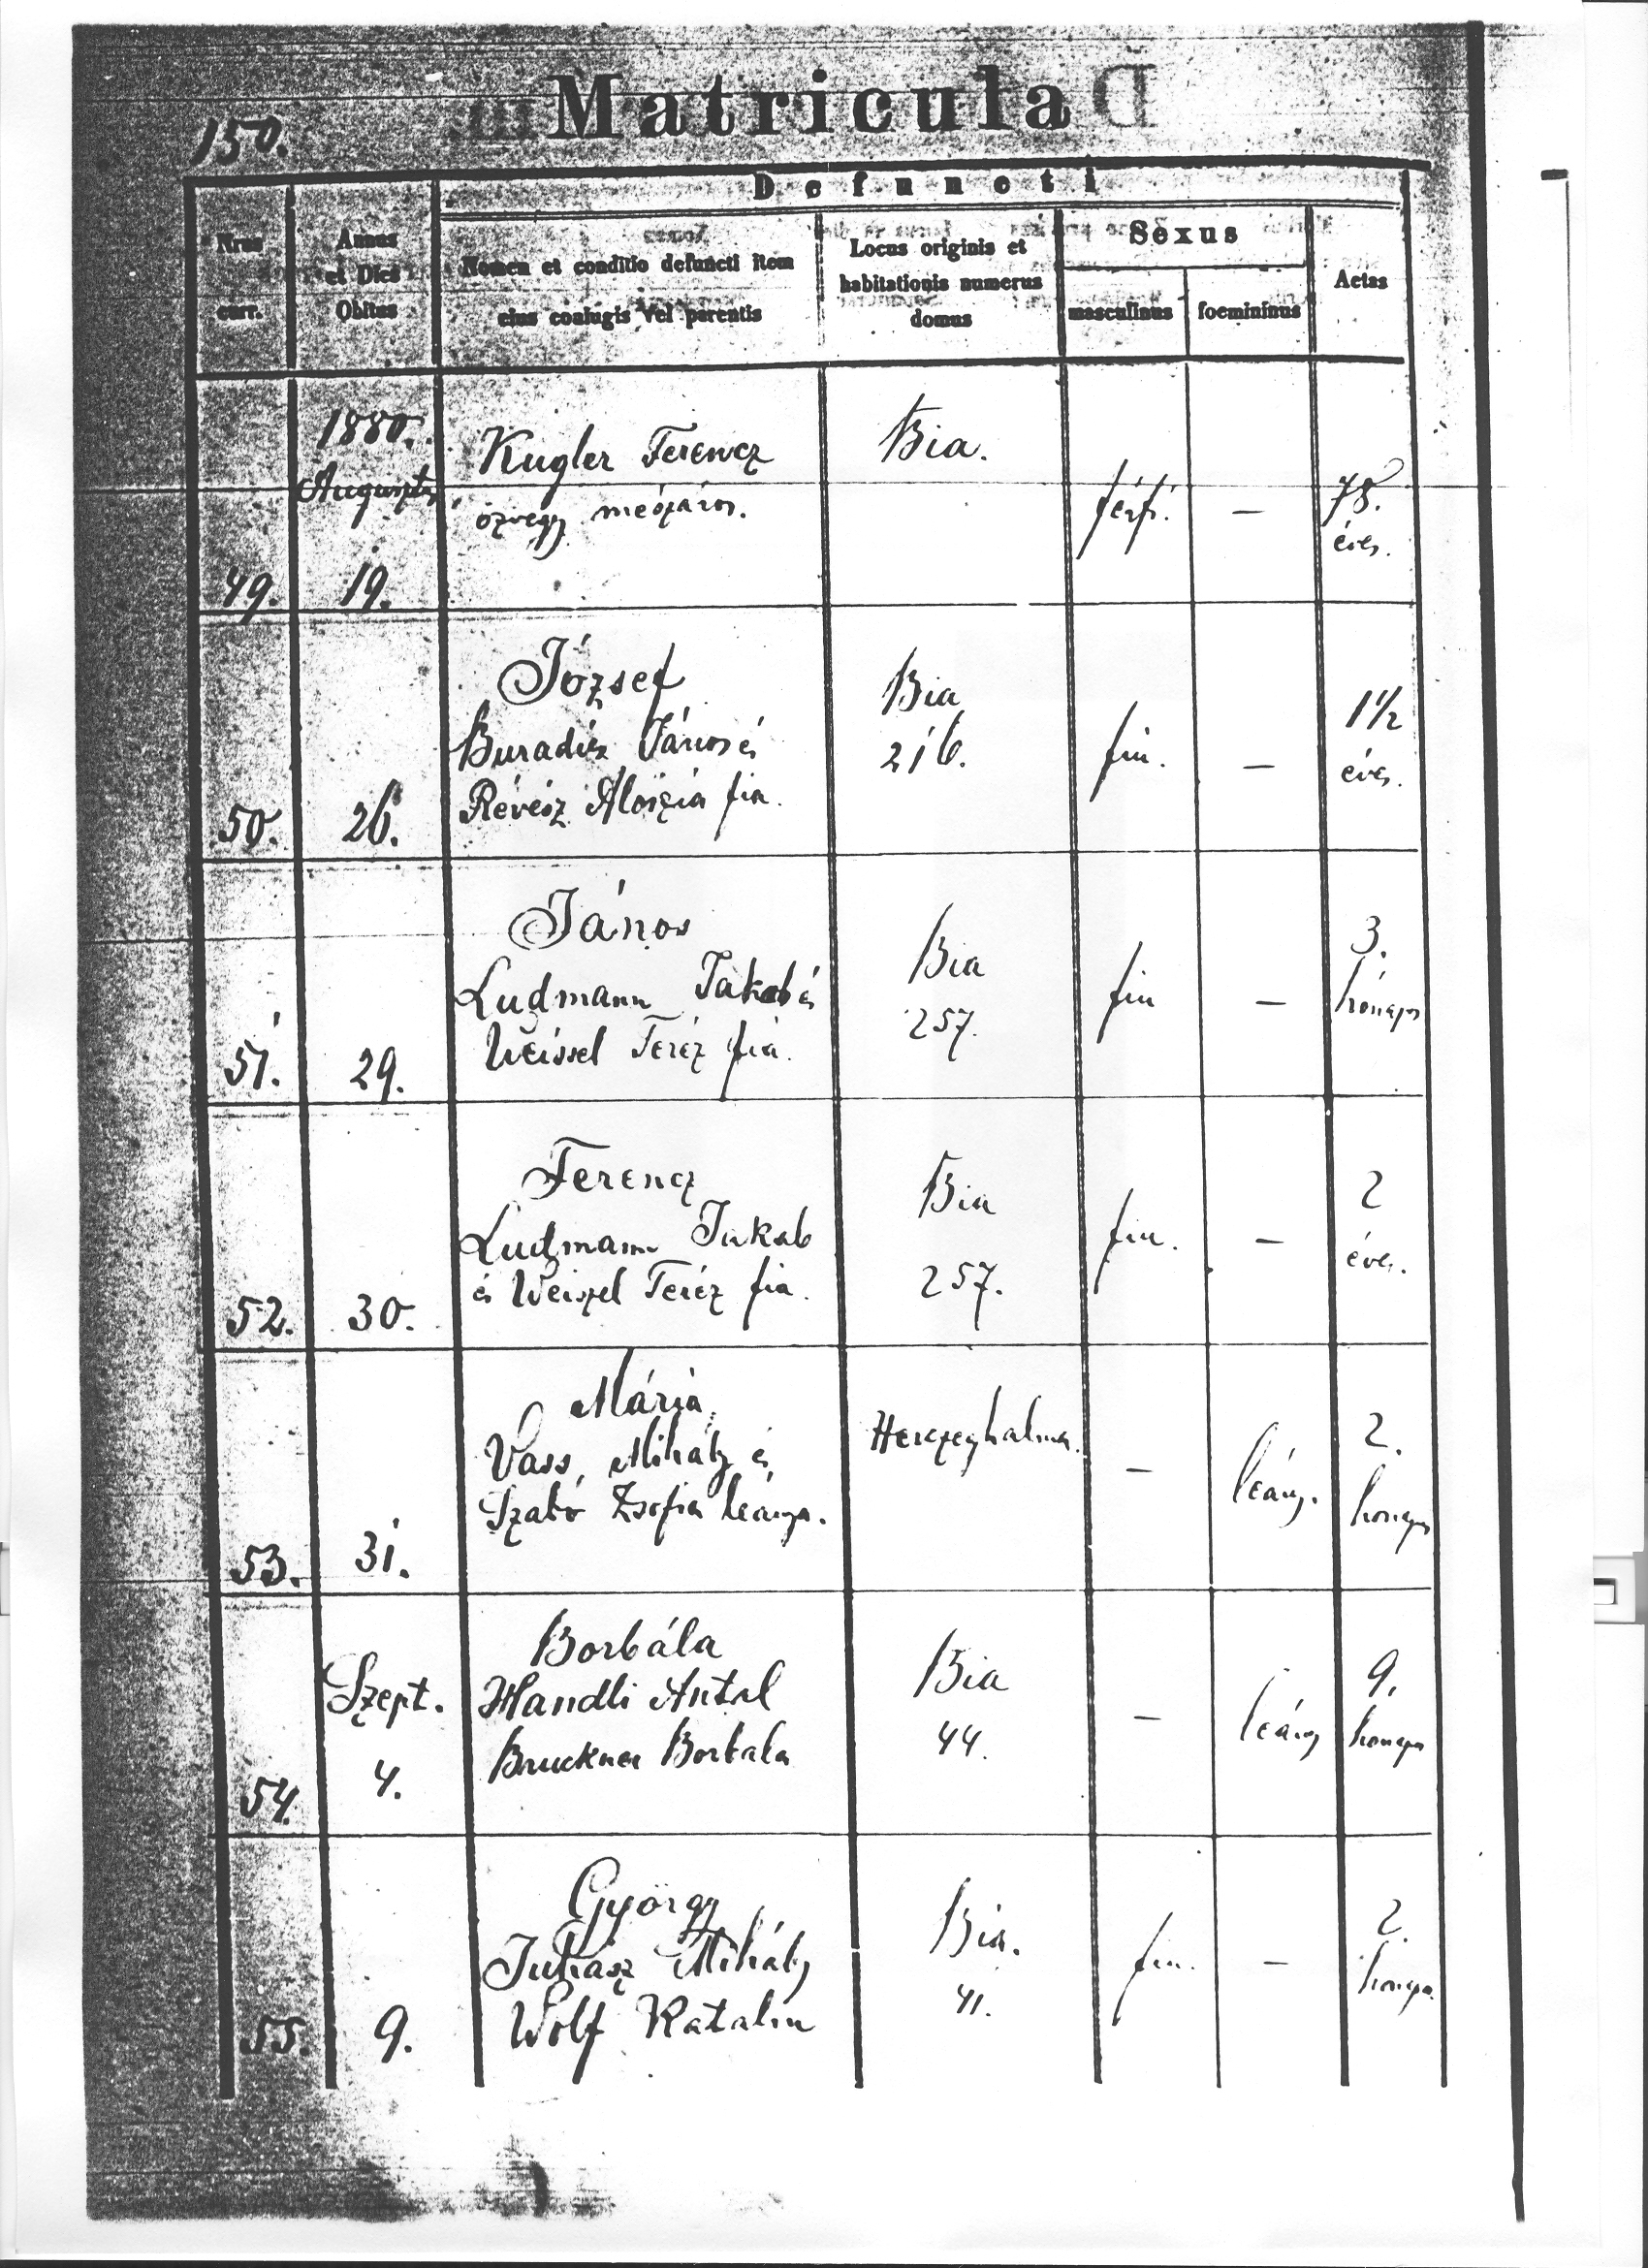 150.
Matricula
Defuncti
Nrus curr.
Annus et Dies Obitus
Nomen et conditio defuncti item
eius coniugis vel parentis
Locus originis et
habitationis numerus
domus
Sexus
masculinus
foemininus
Aetas
49.
1880.
Augusztus
19.
Kugler Ferencz
özvegy mészáros.
Bia.
férfi.
—
78.
éves.
50.
26.
József
János és
Révész Aloÿzia fia.
Bia
216.
fiu.
—
1 1/2
éves.
51.
29.
János
Ludmann Jakab és
Weissel Teréz fia.
Bia
257.
fiu
—
3.
hónapos
52.
30.
Ferencz
Ludmann Jakab
és Weiszel Teréz fia.
Bia
257.
fiu.
—
2
éves.
53.
31.
Mária
Vass Mihály és
Szabó Zsofia leánya.
Herczeghalma.
—
leány.
2.
honapos
54.
Szept.
4.
Borbála
Handli Antal
Bruckner Borbala
Bia
44.
—
leány
9.
honapos
55.
9.
György
Juhász Mihály
Wolf Katalin
Bia.
41.
fiu.
—
2.
honapos